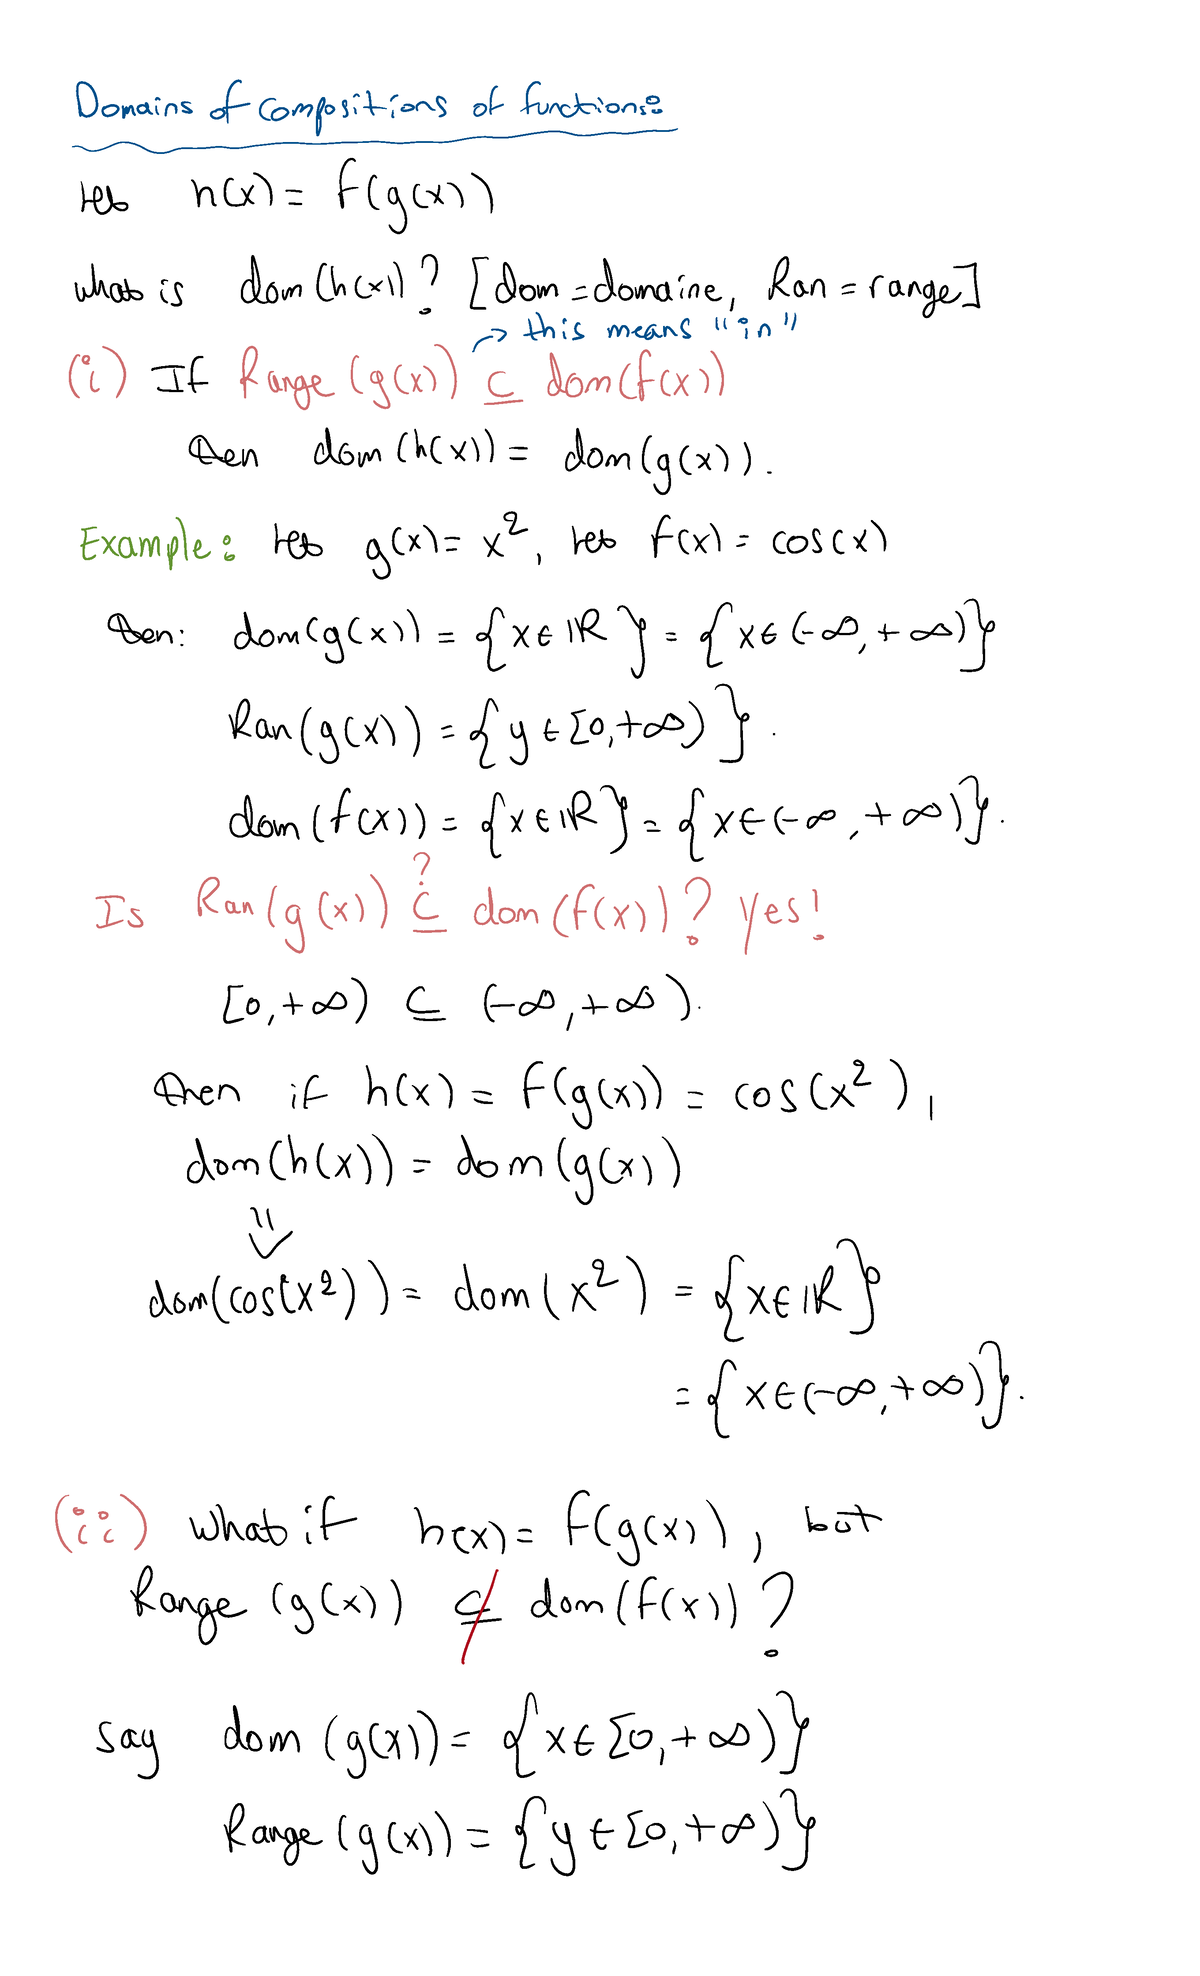 Domains of compositions of functions:
let h(x) = f(g(x))
what is dom(h(x))? [dom = domaine, Ran = range]
→ this means "in"
(i) If Range(g(x)) ⊆ dom(f(x))
then dom(h(x)) = dom(g(x)).
Example: let g(x) = x², let f(x) = cos(x)
then: dom(g(x)) = {x ∈ ℝ} = {x ∈ (-∞, +∞)}
Ran(g(x)) = {y ∈ [0, +∞)}.
dom(f(x)) = {x ∈ ℝ} = {x ∈ (-∞, +∞)}.
?
Is Ran(g(x)) ⊆ dom(f(x))? yes!
[0, +∞) ⊆ (-∞, +∞).
then if h(x) = f(g(x)) = cos(x²),
dom(h(x)) = dom(g(x))
⇓
dom(cos(x²)) = dom(x²) = {x ∈ ℝ}
= {x ∈ (-∞, +∞)}.
(ii) what if h(x) = f(g(x)), but
Range(g(x)) ⊈ dom(f(x))?
say dom(g(x)) = {x ∈ [0, +∞)}
Range(g(x)) = {y ∈ [0, +∞)}